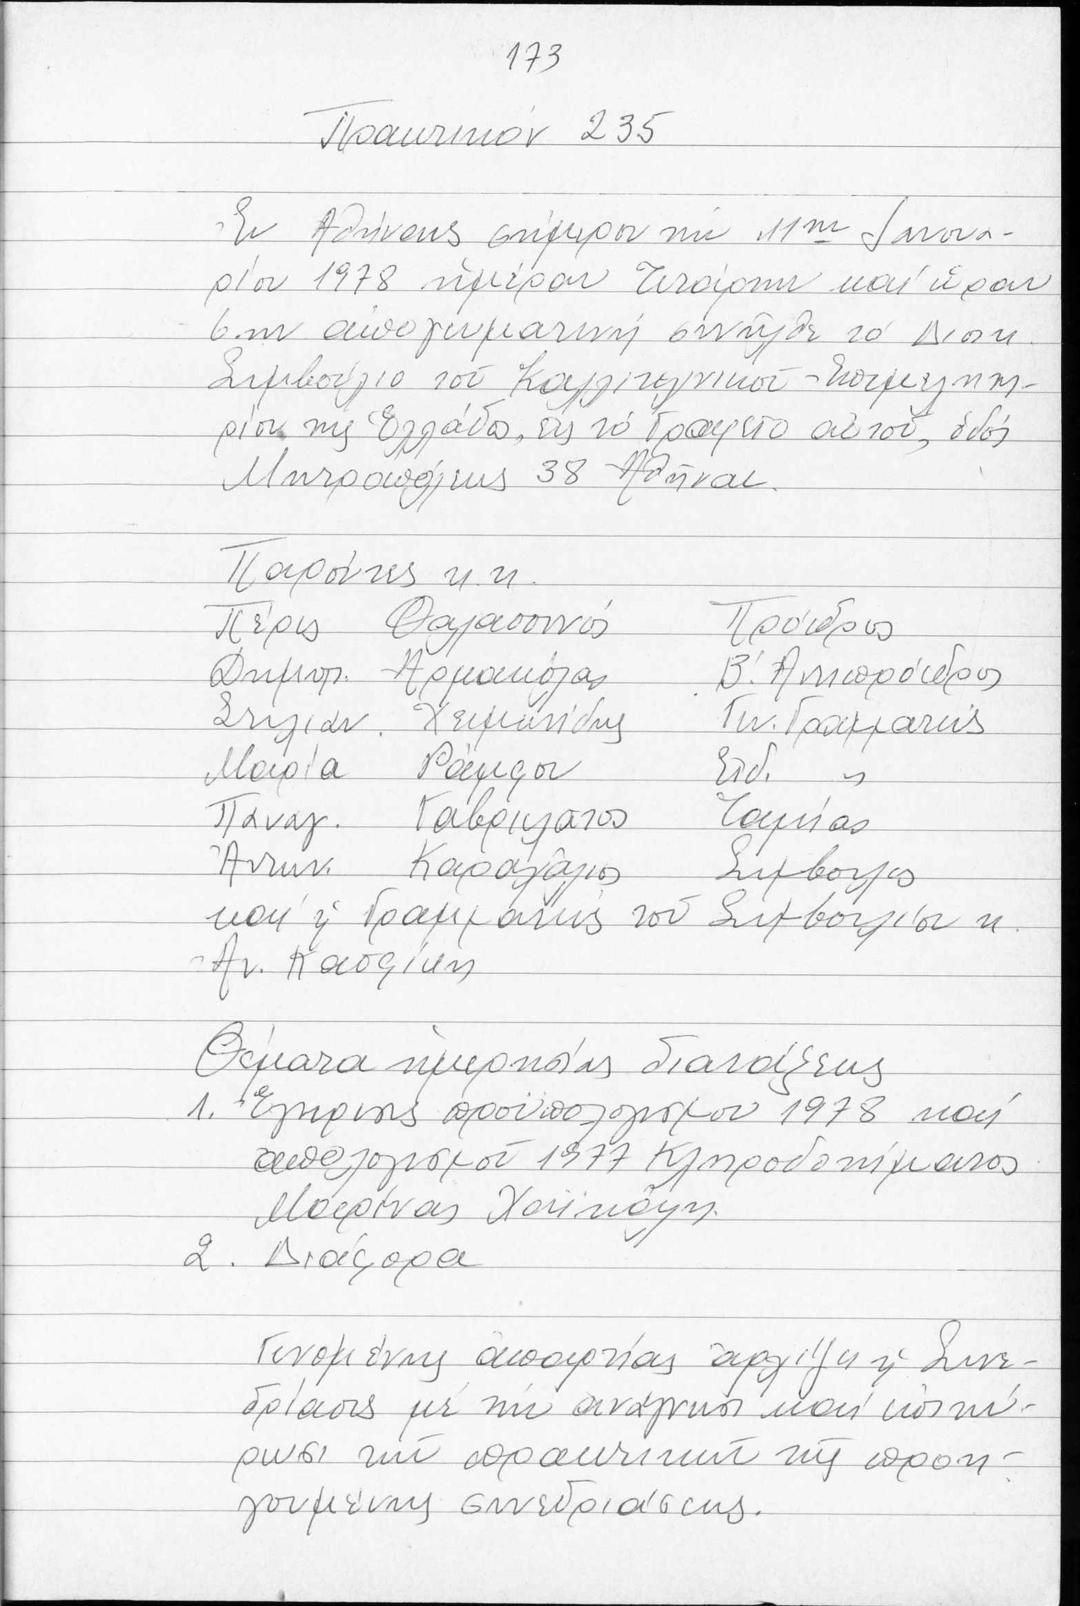 173
Πρακτικόν 235
Ἐν Ἀθήναις σήμερον τήν 11ην Ἰανουα-
ρίου 1978 ἡμέραν Τετάρτην καί ὥραν
6.ην ἀπογευματινή συνῆλθε τό Διοικ.
Συμβούλιο τοῦ Καλλιτεχνικοῦ Ἐπιμελητη-
ρίου τῆς Ἑλλάδος, εἰς τό Γραφεῖο αὐτοῦ, ὁδός
Μητροπόλεως 38 Ἀθῆναι.
Παρόντες κ.κ.
Πέρις Θαλασσινός Πρόεδρος
Δημοσ. Ἀρμακόλας Β΄. Ἀντιπρόεδρος
Στυλιαν. Χειμωνίδης Γεν. Γραμματεύς
Μαρία Ράμφου Εἰδ. "
Παναγ. Γαβριελάτος Ταμίας
Ἀντων. Καραγάλιος Σύμβουλος
καί ἡ Γραμματεύς τοῦ Συμβουλίου κ.
Αν.
Θέματα ἡμερησίας διατάξεως
1. Ἔγκρισις προϋπολογισμοῦ 1978 καί
ἀπολογισμοῦ 1977 Κληροδοτήματος
Μαρίνας
2. Διάφορα
Γενομένης ἀπαρτίας ἀρχίζει ἡ Συνε-
δρίασις μέ τήν ἀνάγνωσι καί ἐπικύ-
ρωσι τῶν πρακτικῶν τῆς προη-
γουμένης συνεδριάσεως.